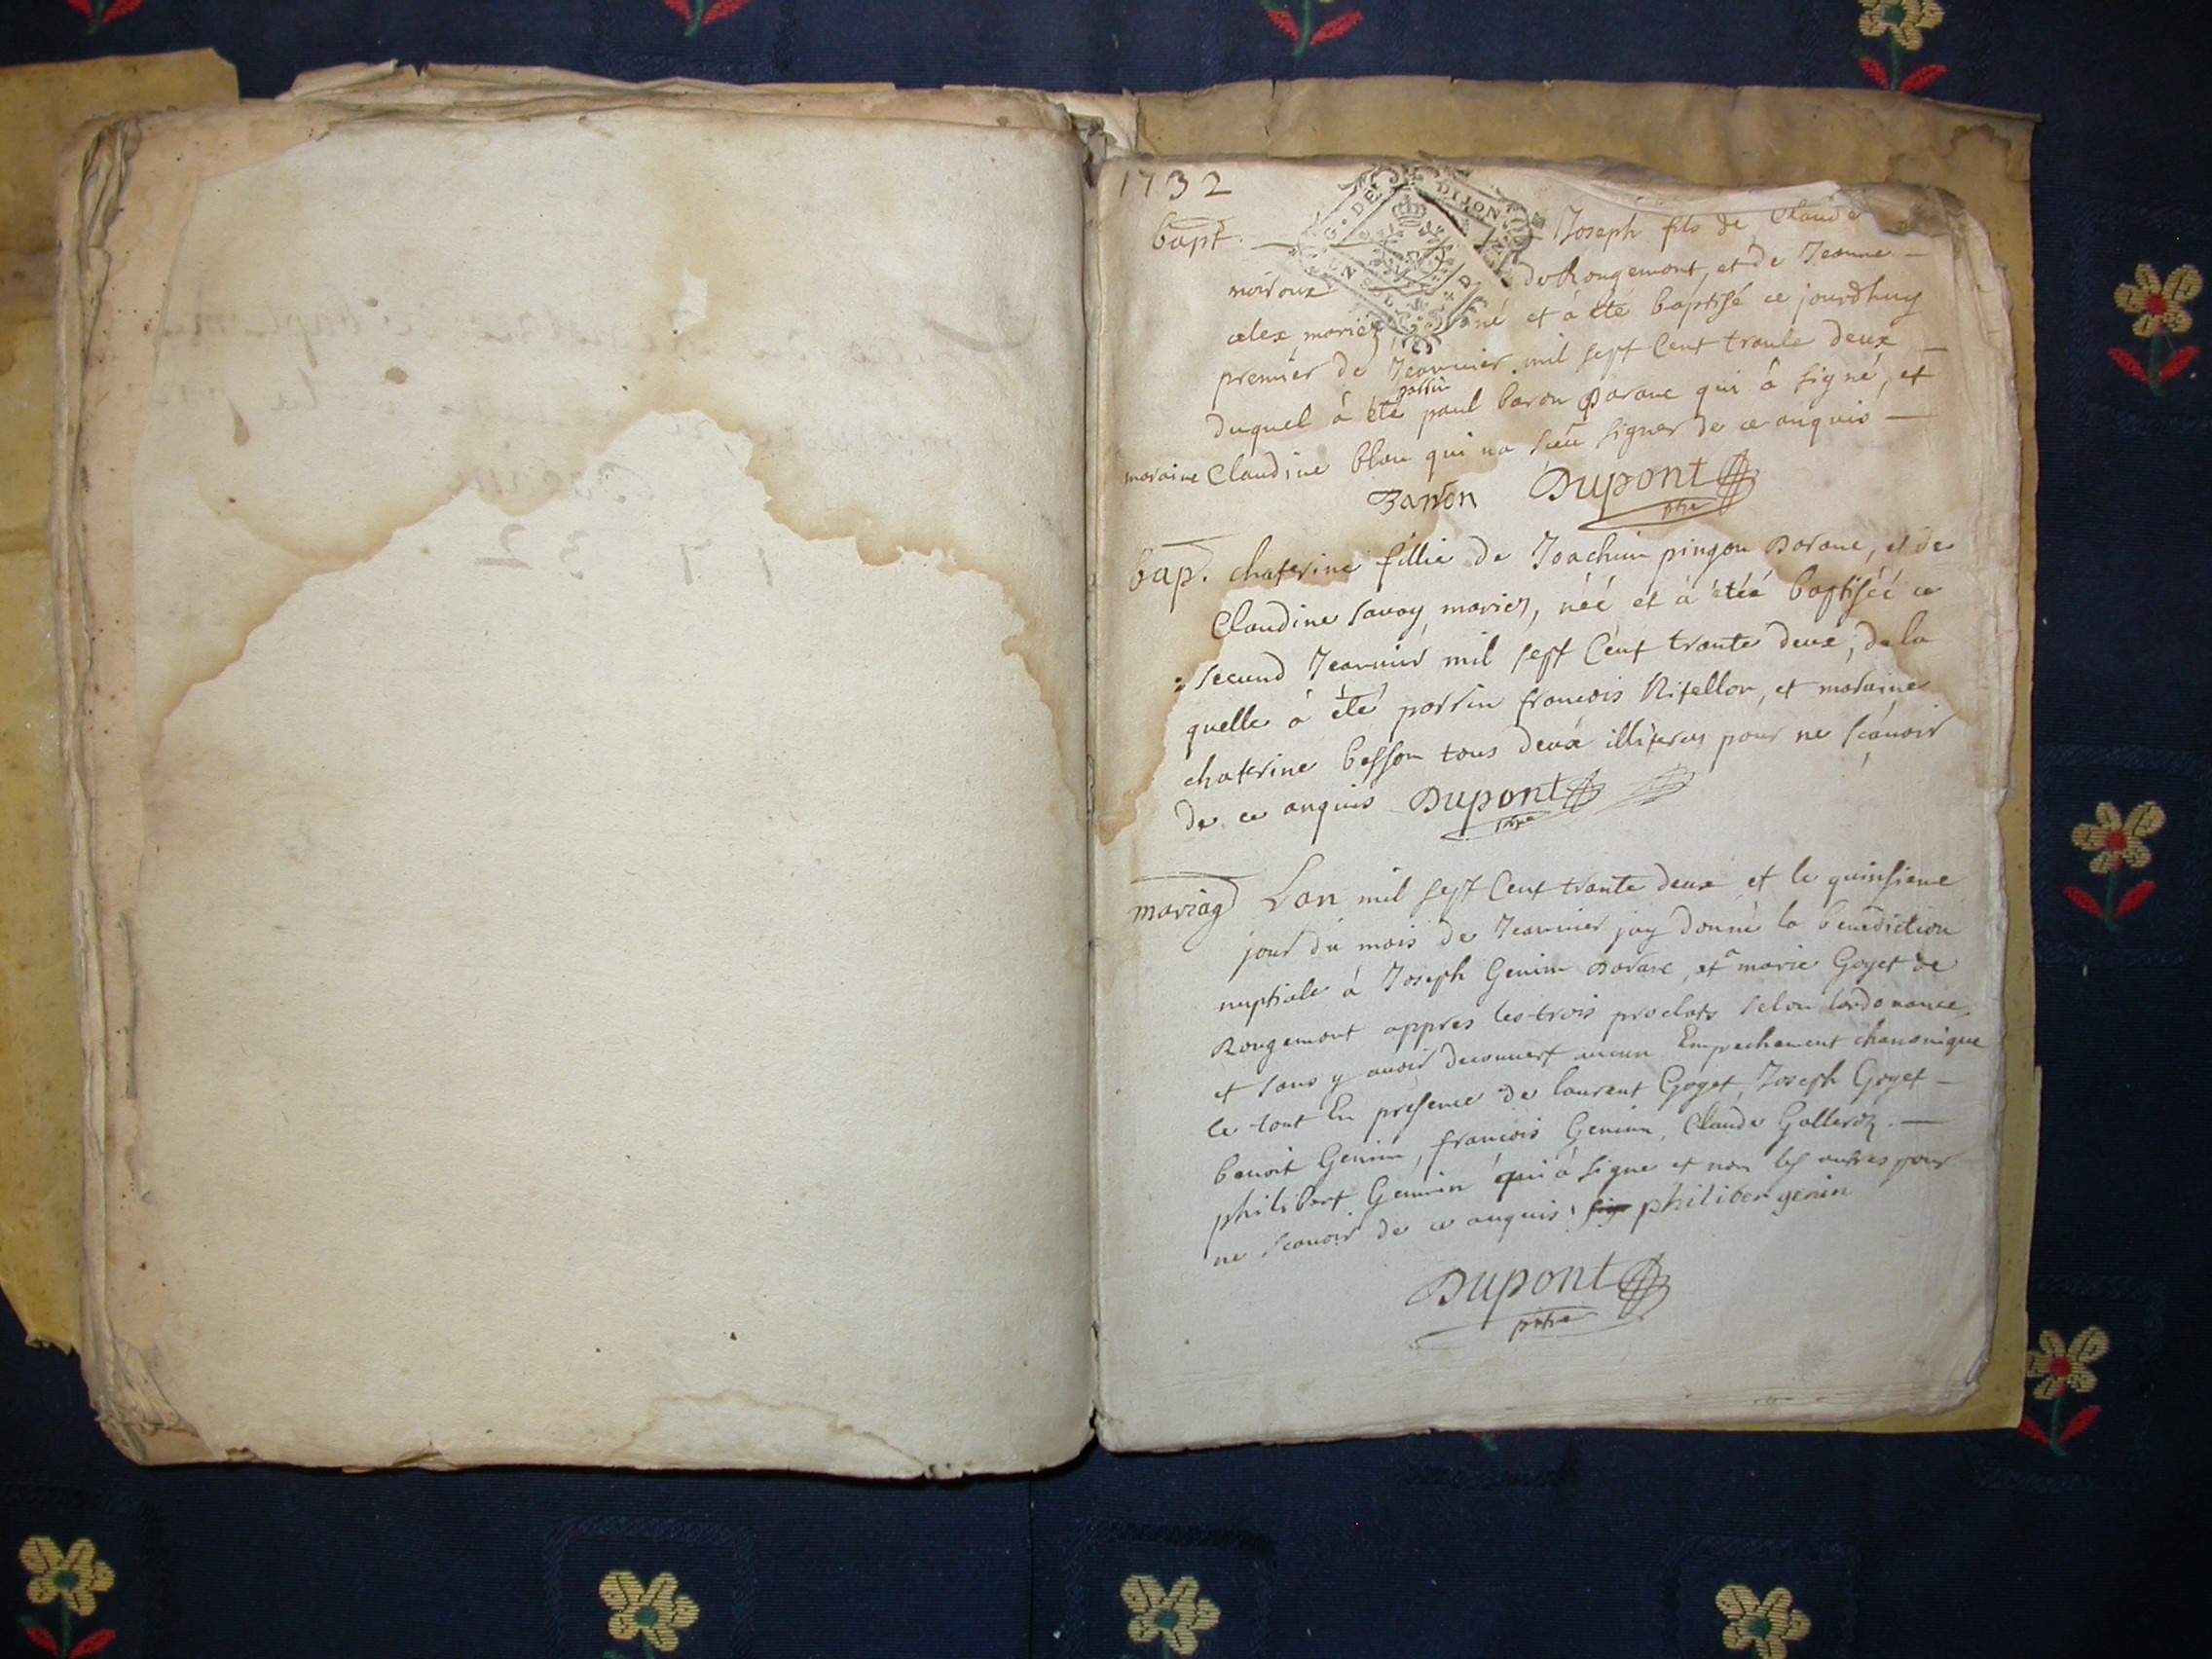 1732
G. DE DIJON
bapt. Joseph fils de Claude
moiroux de Rougemont, et de Jeanne
alex mariez né et à été baptisé ce jourdhuy
premier de Jeanvier mil sept Cent trante deux
parrin
duquel à été paul baron Darane qui à signé, et
maraine Claudine blanc qui na sceu signer de ce anquis
Barron Dupont
ptre
bap. chaterine fillie de Joachim pingon Darane, et de
Claudine savoy mariez, néé et à étéé baptiséé ce
second Jeanvier mil sept Cent trante deux, de la
quelle à été parrin francois Nitellon, et maraine
chaterine besson tous deux illiteres pour ne scavoir
de ce anquis Dupont
ptre
mariag Lan mil sept Cent trante deux et le quinsieme
jour du mois de Jeanvier jay donné la benediction
nuptiale à Joseph Genin Darane, et marie Goyet de
Rougemont appres les trois proclats selon lordonance,
et sans y avoir decouvert aucun Empechement chanonique
le tout En presence de laurent Goyet, Joseph Goyet
benoit Genin, francois Genin, Claude
philibert Gennin qui à signe et non les autres pour
ne scavoir de ce anquis philiber genin
Dupont
ptre
1 7 3 2